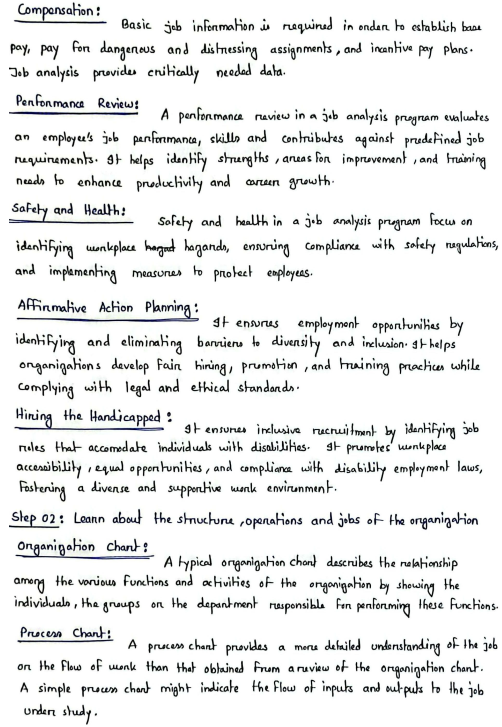 Compensation:
Basic job information is required in order to establish base
pay, pay for dangerous and distressing assignments, and incentive pay plans.
Job analysis provides critically needed data.
Performance Review:
A performance review in a job analysis program evaluates
an employee's job performance, skills and contributes against predefined job
requirements. It helps identify strengths, areas for improvement, and training
needs to enhance productivity and career growth.
Safety and Health:
Safety and health in a job analysis program focus on
identifying workplace hazards, ensuring compliance with safety regulations,
and implementing measures to protect employees.
Affirmative Action Planning:
It ensures employment opportunities by
identifying and eliminating barriers to diversity and inclusion. It helps
organizations develop fair hiring, promotion, and training practices while
complying with legal and ethical standards.
Hiring the Handicapped:
It ensures inclusive recruitment by identifying job
roles that accomodate individuals with disabilities. It promotes workplace
accessibility, equal opportunities, and compliance with disability employment laws,
fostering a diverse and supportive work environment.
Step 02: Learn about the structure, operations and jobs of the organization
Organization Chart:
A typical organization chart describes the relationship
among the various functions and activities of the organization by showing the
individuals, the groups or the department responsible for performing these functions.
Process Chart:
A process chart provides a more detailed understanding of the job
or the flow of work than that obtained from a review of the organization chart.
A simple process chart might indicate the flow of inputs and outputs to the job
under study.